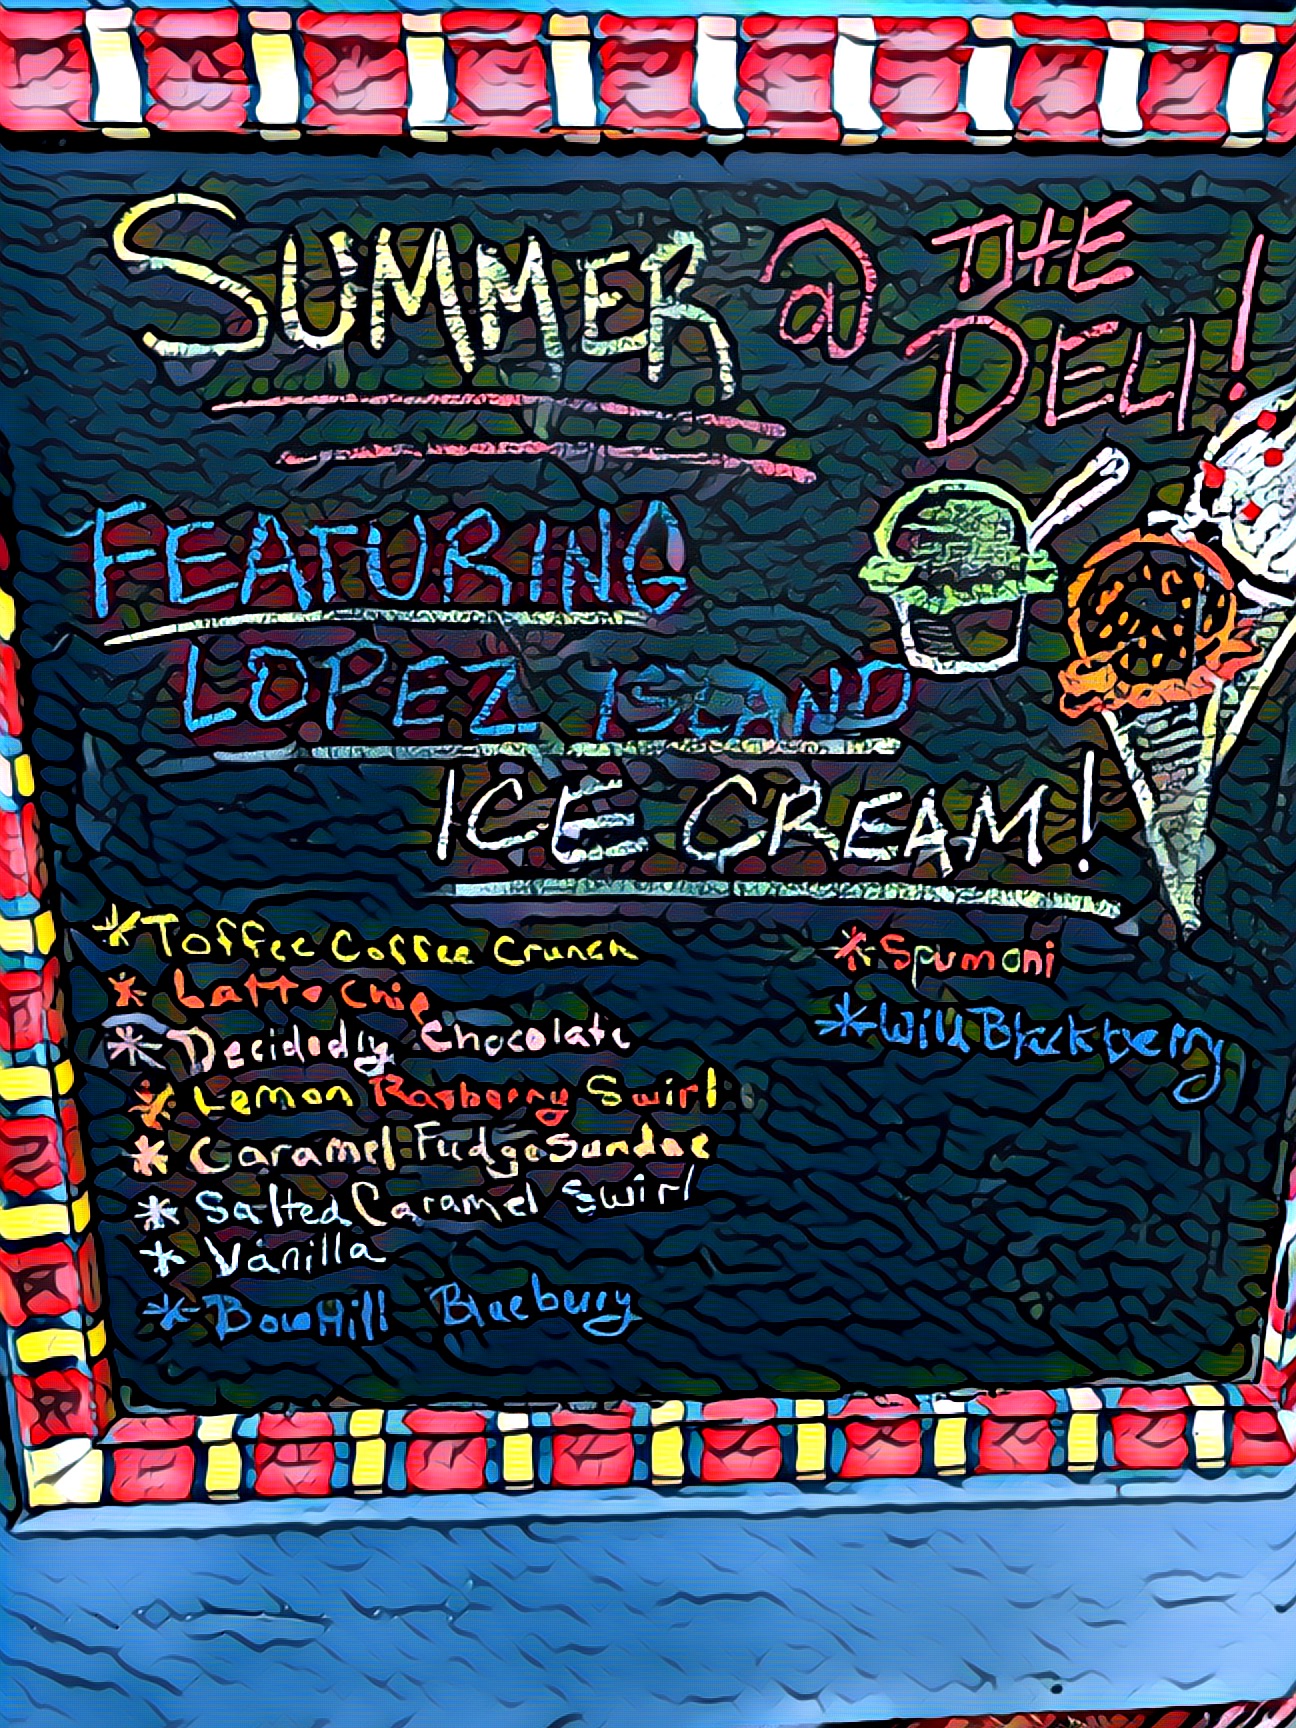 SUMMER @ THE
DELI!
FEATURING
LOPEZ ISLAND
ICE CREAM!
* Toffee Coffee Crunch
* Latte Chip
* Decidedly Chocolate
* Lemon Rasberry Swirl
* Caramel Fudge Sundae
* Salted Caramel Swirl
* Vanilla
* Bow Hill Blueberry
* Spumoni
* Wild Blackberry